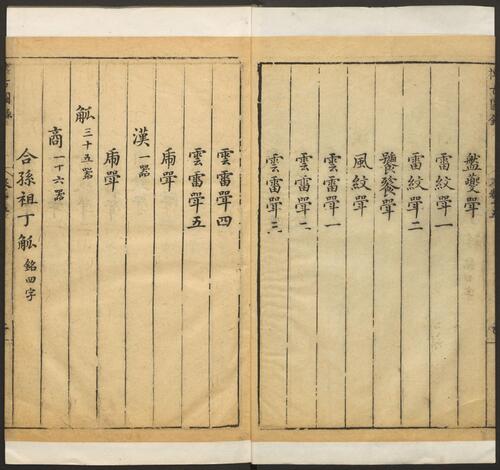 盤夔斝
雷紋斝一
雷紋斝二
饕餮斝
風紋斝
雲雷斝一
雲雷斝二
雲雷斝三
雲雷斝四
雲雷斝五
斝
漢一器
斝
觚三十五器
商一十六器
合孫祖丁觚銘四字